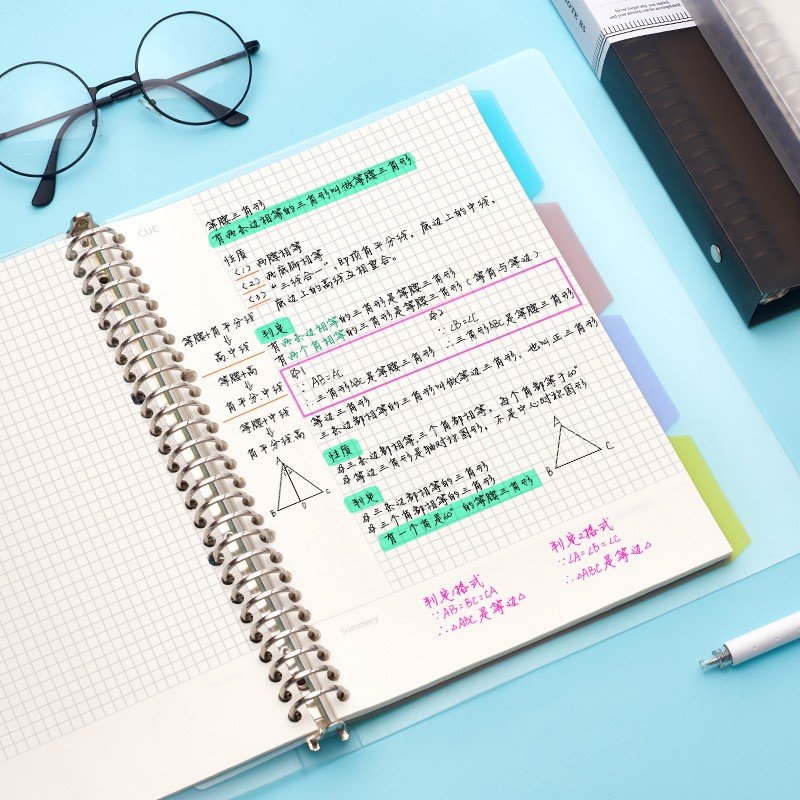 Never forget why you started,
and your mission can be accomplished.
NOTE B5
CUE
等腰三角形
有两条边相等的三角形叫做等腰三角形
性质
(1) 两腰相等
(2) 两底脚相等
(3) "三线合一",即顶角平分线,底边上的中线,
底边上的高线互相重合。
判定
有两条边相等的三角形是等腰三角形
有两个角相等的三角形是等腰三角形(等角与等边)
命1
∵ AB=AC
∴三角形ABC是等腰三角形
命2
∵ ∠B=∠C
∴三角形ABC是等腰三角形
等腰+角平分线
⇓
高.中线
等腰+高
⇓
角平分.中线
等腰+中线
⇓
角平分线高
等边三角形
三条边都相等的三角形叫做等边三角形,也叫正三角形
性质
①三条边都相等三个角都相等,每个角都等于60°
②等边三角形是轴对称图形,不是中心对称图形
判定
①三条边都相等的三角形
②三个角都相等的三角形
有一个角是60°的等腰三角形
A
B
D
C
A
B
C
判定1格式
∵AB=BC=CA
∴△ABC是等边△
判定2格式
∵∠A=∠B=∠C
∴△ABC是等边△
Summary